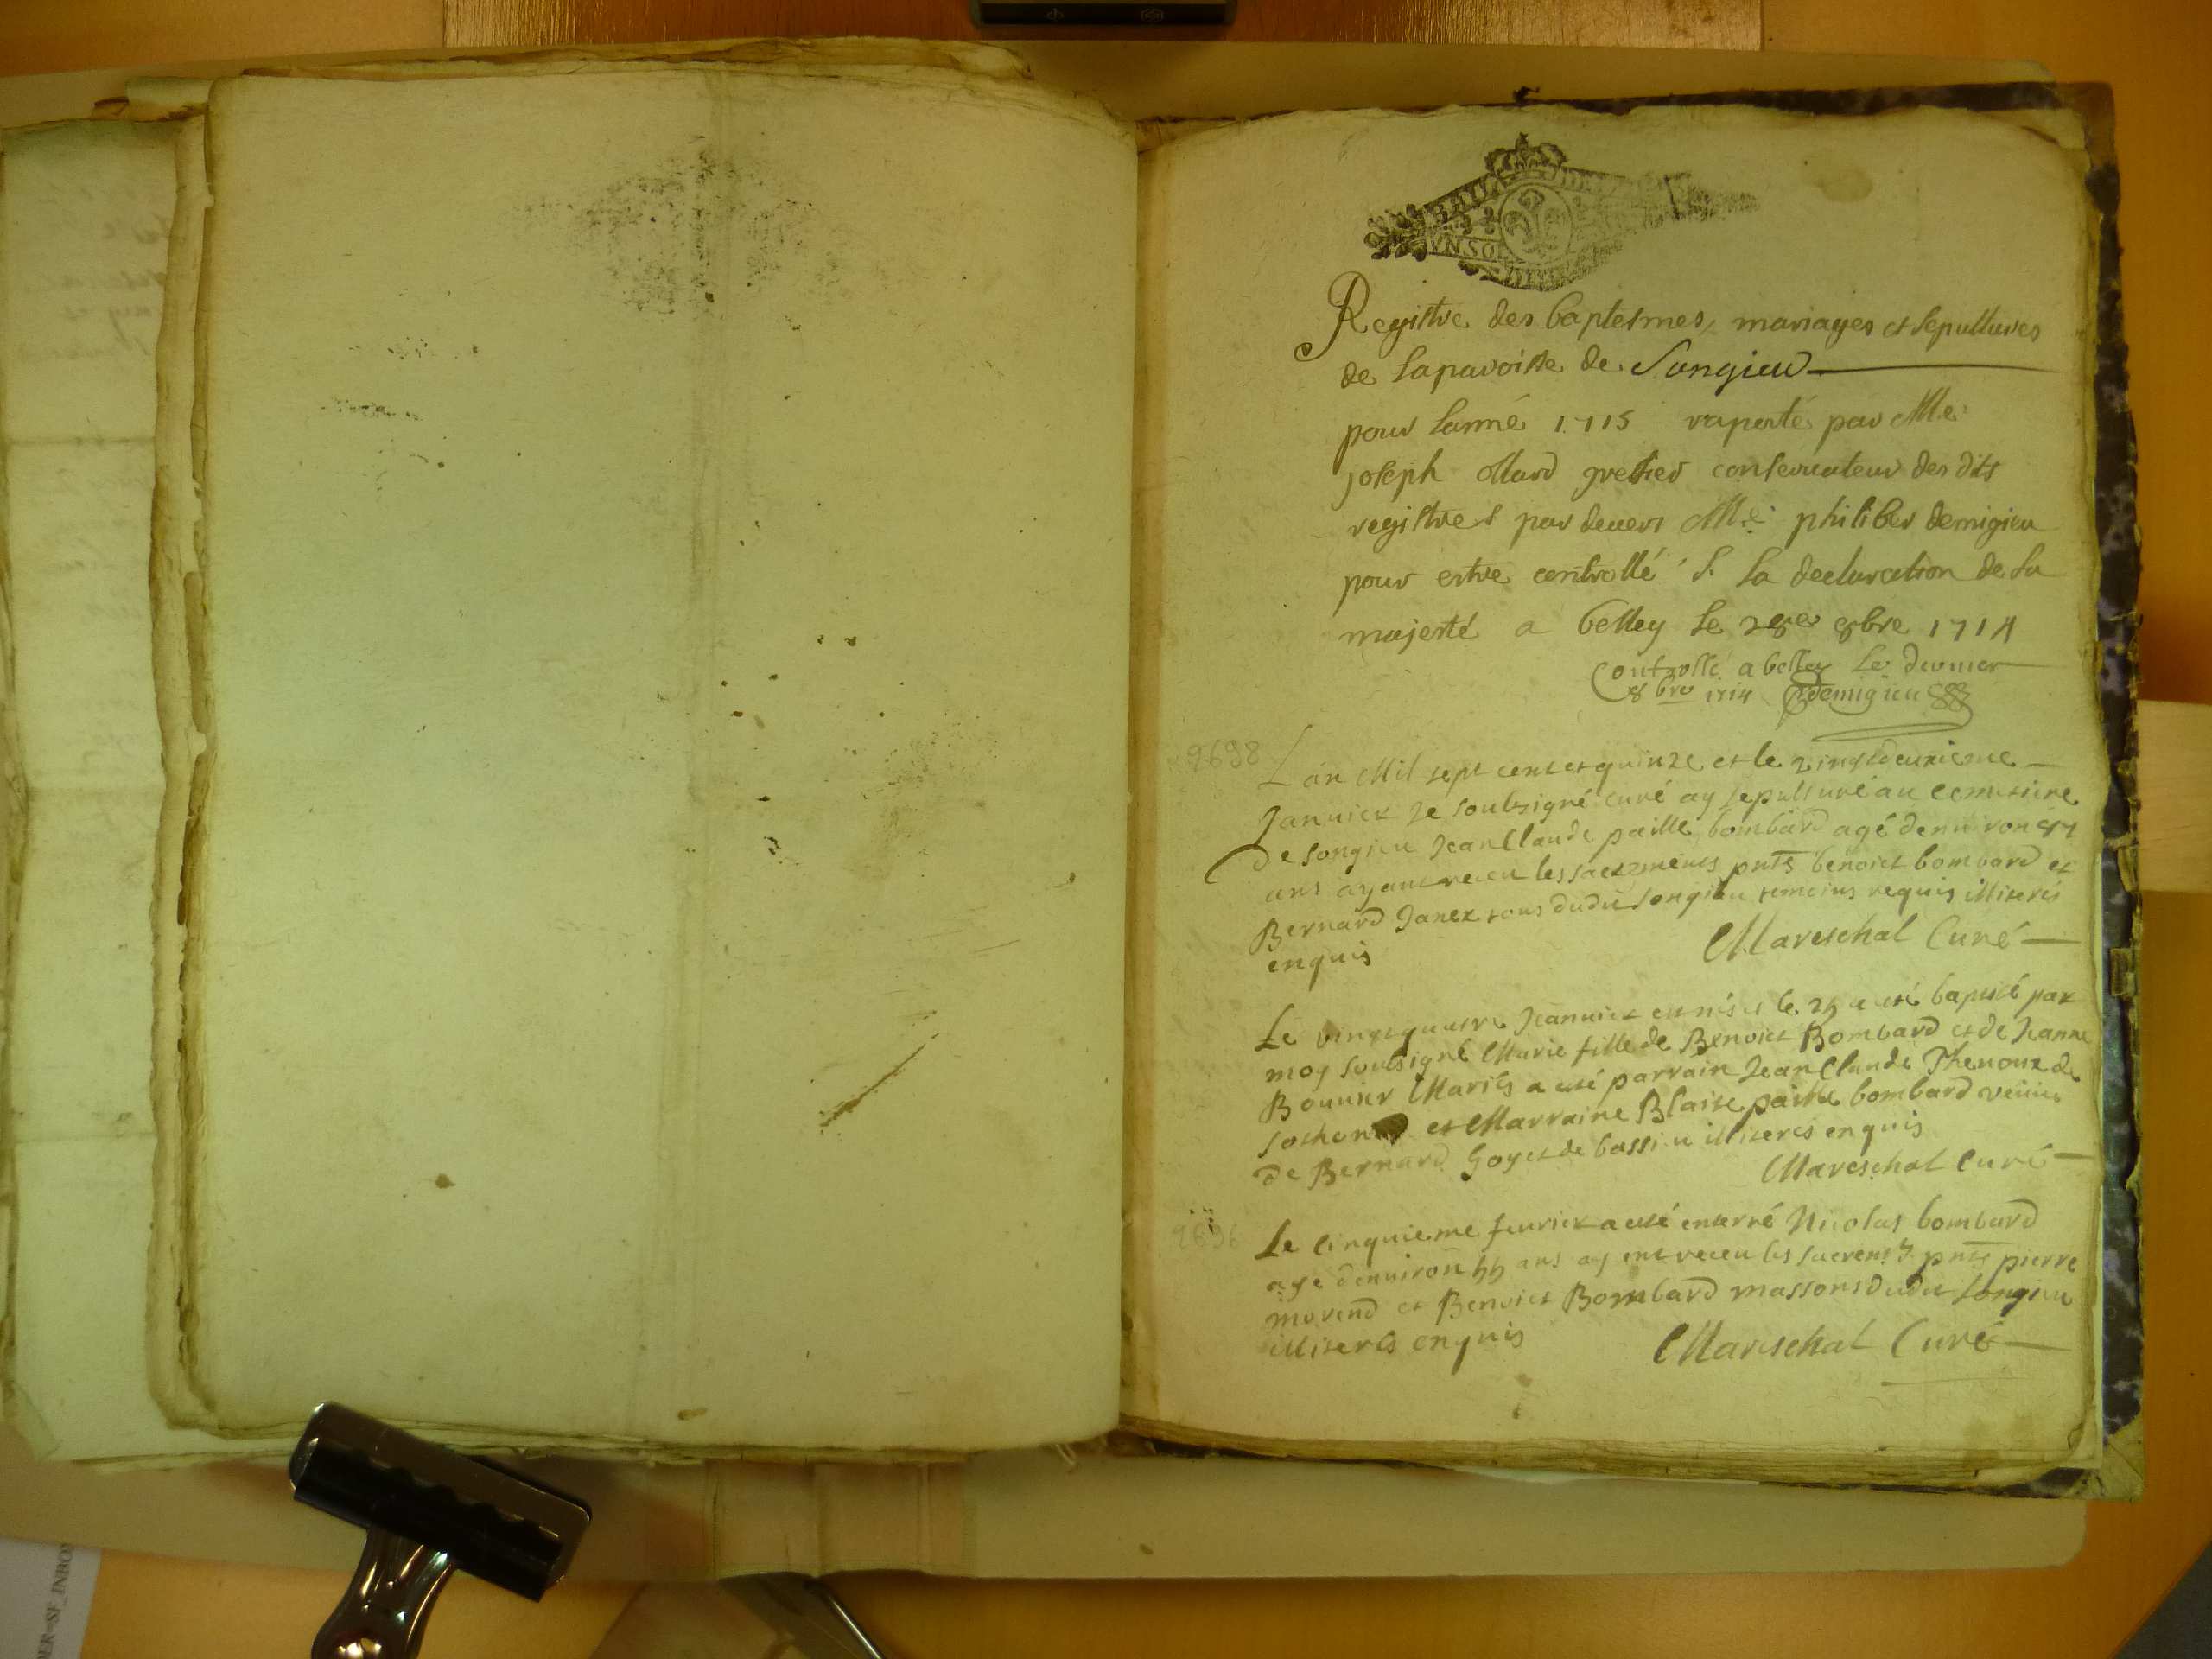 VN SOL
Registre des baptesmes, mariages et sepultures
de La paroisse de Songieu
pour Lanné 1715 raporté par Me
joseph ollard greffier conseruateur des dits
registres par deuers Me philiber demigieu
pour estre controllé s. La declaration de sa
majesté a belley Le 28e 8bre 1714
Controllé a belley Le dernier
8bre 1714 demigieu
2698
Lan Mil sept cent et quinze et le vingtdeuxieme
Januier Je soubsigné curé ay sepulturé au cemetiere
de songieu Jean Claude paille bombard agé denuiron
ans ayant receu les sacrements pnts benoict bombard et
Bernard Janex tous dudit songieu temoins requis illiterés
enquis
Mareschal Curé
Le vingtquatre Jeanuier est née et le 25 a eté baptisé par
moy soubsigné Marie fille de Benoict Bombard et de Jeanne
Bounier Mariés a eté parrain Jean Claude Thenoux de
sothonod et Marraine Blaise paille bombard veuue
de Bernard Goyet de bassieu illiterés enquis
Mareschal Curé
2696
Le cinquieme feurier a eté enterré Nicolas bombard
age denuiron 55 ans ayent receu les sacrents pnts pierre
morend et Benoict Bombard massons dudit songieu
illiterés enquis
Mareschal Curé